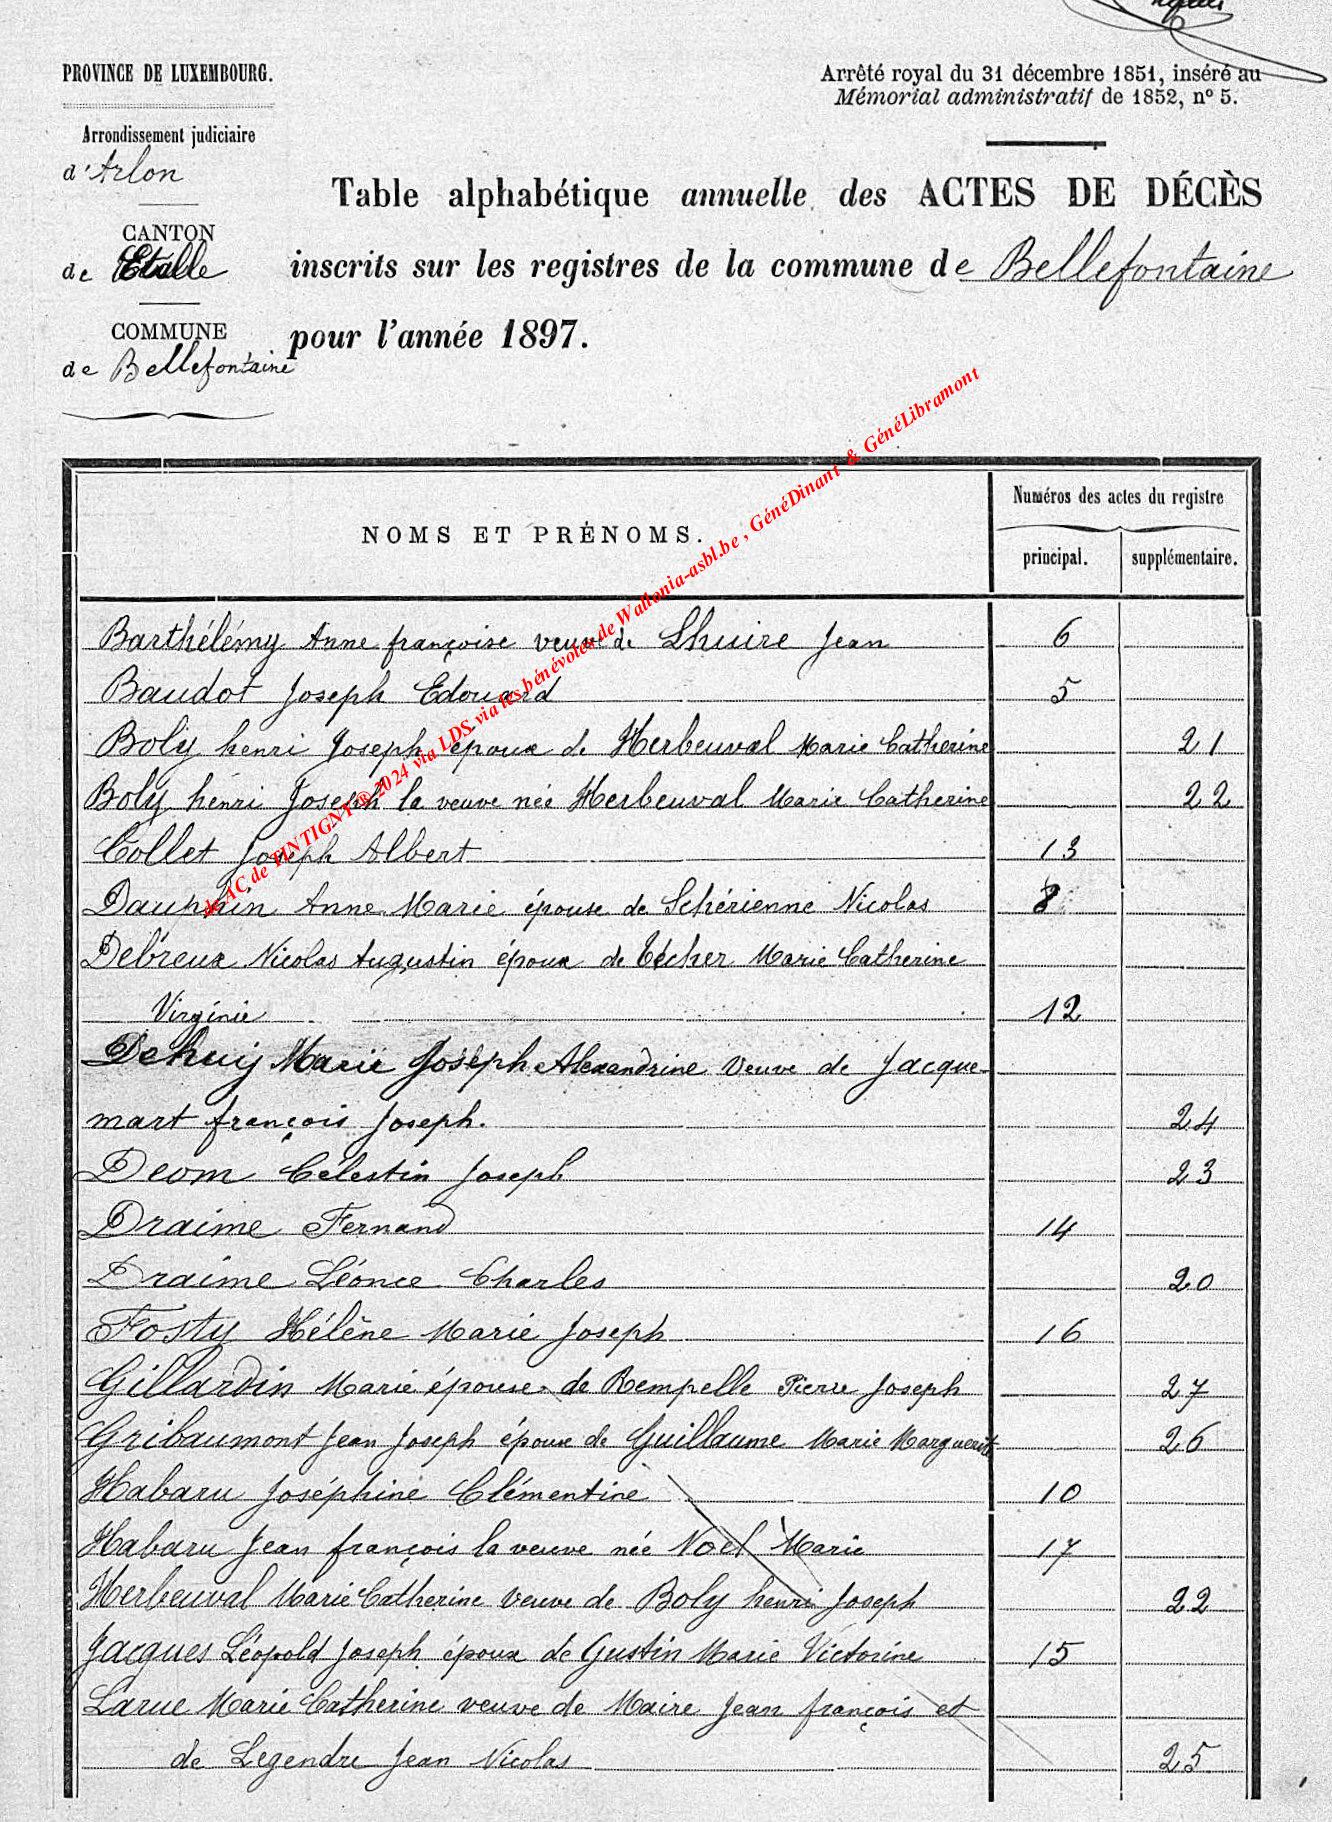 PROVINCE DE LUXEMBOURG.
Arrêté royal du 31 décembre 1851, inséré au
Mémorial administratif de 1852, n° 5.
Arrondissement judiciaire
d'Arlon
Table alphabétique annuelle des ACTES DE DÉCÈS
CANTON
de Etalle
inscrits sur les registres de la commune de Bellefontaine
COMMUNE
de Bellefontaine
pour l'année 1897.
de AC de TINTIGNY ® 2024 via LDS. via les bénévoles de Wallonia-asbl.be , GénéDinant & GénéLibramont
NOMS ET PRÉNOMS.
Numéros des actes du registre
principal. supplémentaire.
Barthélémy Anne françoise veuve de Lhuire Jean 6
Baudot Joseph Edouard 5
Boly henri Joseph époux de Herbeuval Marie Catherine 21
Boly henri Joseph la veuve née Herbeuval Marie Catherine 22
Collet Joseph Albert 13
Dauphin Anne Marie épouse de Schérienne Nicolas 8
Debreux Nicolas Augustin époux de Técher Marie Catherine
Virginie 12
Dehuy Marie Joseph Alexandrine veuve de Jacque-
mart françois Joseph. 24
Deom Célestin Joseph 23
Draime Fernand 14
Draime Léonce Charles 20
Fosty Hélène Marie Joseph 16
Gillardin Marie épouse de Rempelle Pierre Joseph 27
Gribaumont Jean Joseph époux de Guillaume Marie Marguerite 26
Habaru Joséphine Clémentine 10
Habaru Jean françois la veuve née Noel Marie 17
Herbeuval Marie Catherine veuve de Boly henri Joseph 22
Jacques Léopold Joseph époux de Gustin Marie Victorine 15
Larue Marie Catherine veuve de Maire Jean françois et
de Legendre Jean Nicolas 25